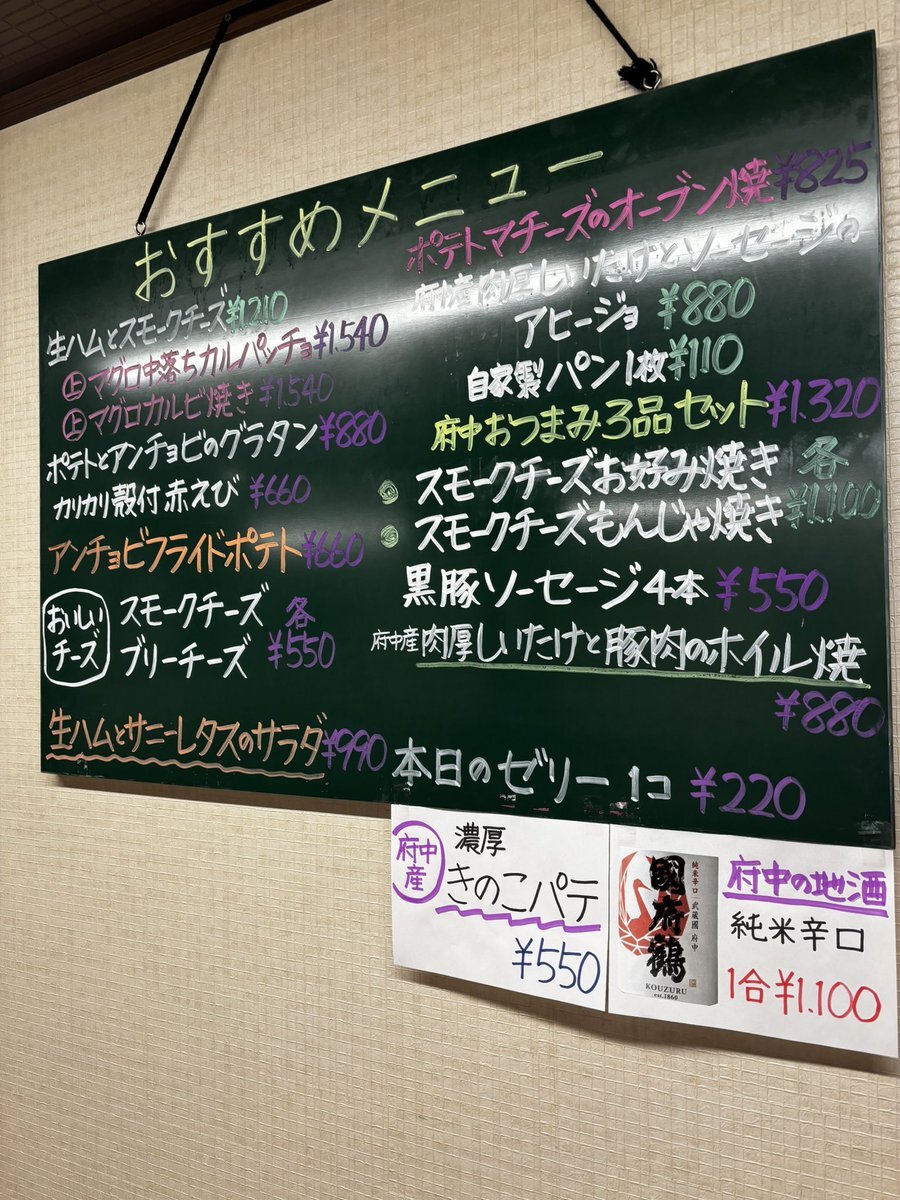 おすすめメニュー
生ハムとスモークチーズ¥1210
㊤マグロ中落ちカルパッチョ¥1.540
㊤マグロカルビ焼き¥1.540
ポテトとアンチョビのグラタン¥880
カリカリ殻付赤えび¥660
アンチョビフライドポテト¥660
おいしいチーズ
スモークチーズ 各
ブリーチーズ ¥550
生ハムとサニーレタスのサラダ¥990
ポテトマチーズのオーブン焼¥825
府中産肉厚しいたけとソーセージの
アヒージョ ¥880
自家製パン1枚¥110
府中おつまみ3品セット¥1.320
スモークチーズお好み焼き 各
スモークチーズもんじゃ焼き ¥1.100
黒豚ソーセージ4本 ¥550
府中産肉厚しいたけと豚肉のホイル焼
¥880
本日のゼリー 1コ ¥220
府中産
濃厚
きのこパテ
¥550
純米辛口 武蔵國 府中
國府鶴
KOUZURU
est.1860
府中の地酒
純米辛口
1合¥1.100